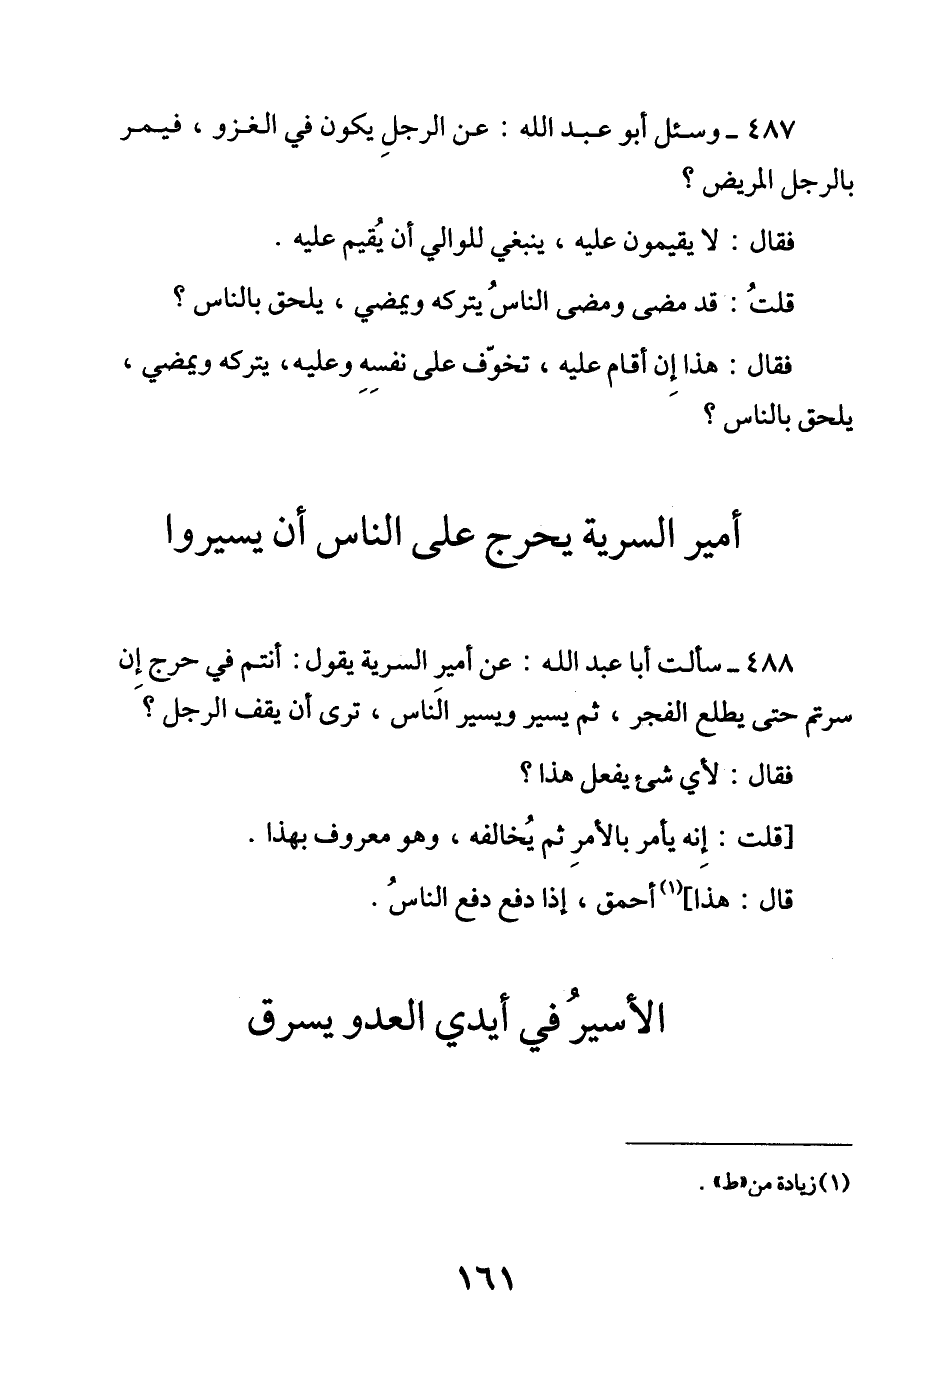 ٤٨٧ ـ وسئل أبو عبد الله : عن الرجلِ يكون في الغزو ، فيمر
بالرجل المريض ؟
فقال : لا يقيمون عليه ، ينبغي للوالي أن يُقيم عليه .
قلتُ : قد مضى ومضى الناسُ يتركه ويمضي ، يلحق بالناس ؟
فقال : هذا إِن أقام عليه ، تخوّف على نفسِهِ وعليه، يتركه ويمضي ،
يلحق بالناس ؟
أمير السرية يحرج على الناس أن يسيروا
٤٨٨ ـ سألت أبا عبد الله : عن أميرِ السرية يقول : أنتم في حرج إِن
سرتم حتى يطلع الفجر ، ثم يسير ويسير الناس ، ترى أن يقف الرجل ؟
فقال : لأي شئ يفعل هذا ؟
[قلت : إِنه يأمر بالأمرِ ثم يُخالفه ، وهو معروف بهذا .
قال : هذا](١) أحمق ، إذا دفع دفع الناسُ .
الأسيرُ في أيدي العدو يسرق
(١) زيادة من «ط» .
١٦١